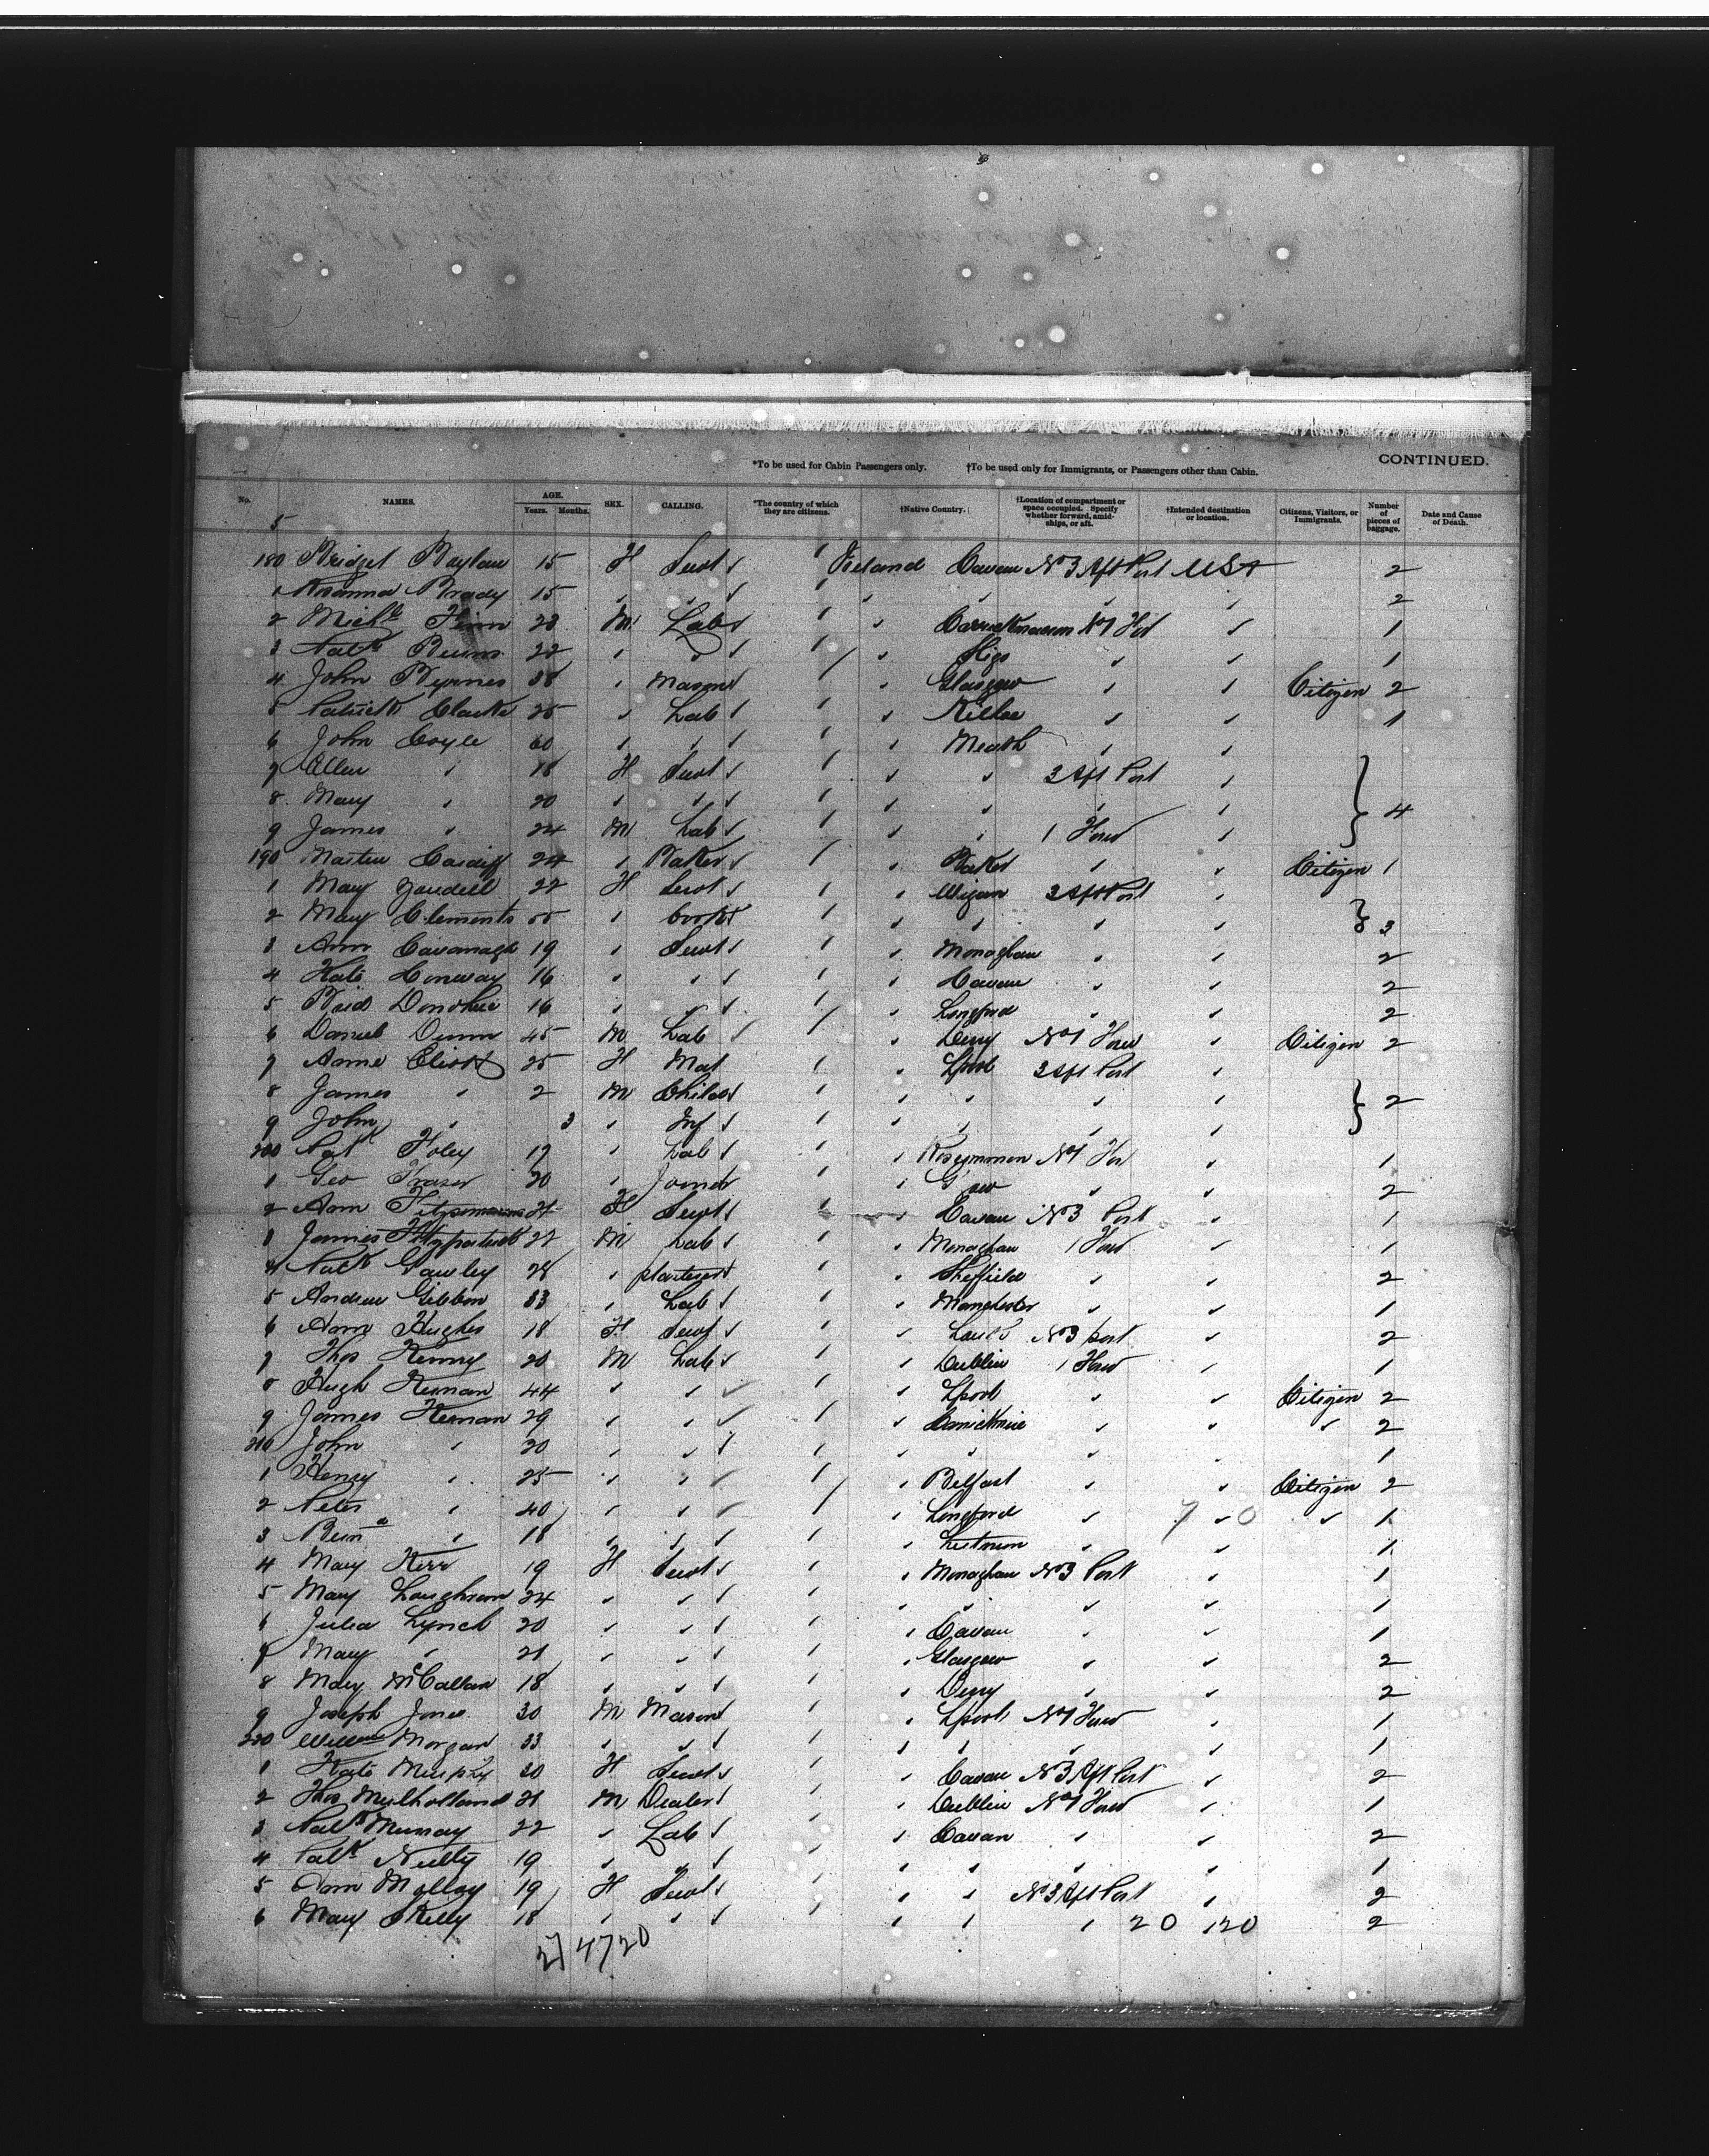 *To be used for Cabin Passengers only. †To be used only for Immigrants, or Passengers other than Cabin. CONTINUED.
No. NAMES. AGE. Years. Months. SEX. CALLING. *The country of which they are citizens. †Native Country. †Location of compartment or space occupied. Specify whether forward, amidships, or aft. †Intended destination or location. Citizens, Visitors, or Immigrants. Number of pieces of baggage. Date and Cause of Death.
5
180 Bridget 15 F Servt Ireland Cavan No 3 Aft Port USA 2
1 Rosanna Brady 15 2
2 Michl Finn 23 M Lab No 1 1
3 Patk 22 1
4 John Byrnes 38 Mason Glasgow Citizen 2
5 Patrick Clarke 25 Lab 1
6 John Coyle 60 Meath
7 Ellen 18 F Servt 3 Aft Port
8 Mary 20 4
9 James 24 M Lab 1 Forwd
190 Martin Cardiff 24 Baker Citizen 1
1 Mary 22 F Servt Wigan 3 Aft Port
2 Mary Clements 55 Cook 3
3 Ann Cavanagh 19 Servt Monaghan 2
4 Kate Conway 16 Cavan 2
5 Brid Donohue 16 Longford 2
6 Daniel Dunn 45 M Lab Derry No 1 Forwd Citizen 2
7 Anne Eliott 25 F Mat Lpool 3 Aft Port
8 James 2 M Child 2
9 John 3 Inf
200 Pat Foley 17 Lab Roscommon No 1 1
1 Geo Fraser 20 Joiner 2
2 Ann Fitzsimmons 21 F Servt Cavan No 3 Port 1
3 James Fitzpatrick 22 M Lab Monaghan 1 Forwd 1
4 Patk Gawley 28 plasterer Sheffield 2
5 Andrew Gibbon 33 Lab Manchester 1
6 Ann Hughes 18 F Servt No 3 port 2
7 Thos Kenny 20 M Lab Dublin 1 Forwd 1
8 Hugh Kernan 44 Lpool Citizen 2
9 James Kernan 29 2
210 John 20 1
1 Henry 25 Belfast Citizen 2
2 Peter 40 Longford 1
3 18 1
4 Mary Kerr 19 F Servt Monaghan No 3 Port 1
5 Mary Loughran 24 1
6 Julia Lynch 20 Cavan 1
7 Mary 21 Glasgow 2
8 Mary McCallan 18 Derry 2
9 Joseph Jones 30 M Mason Lpool No 1 Forwd 1
220 William Morgan 33 1
1 Kate Murphy 20 F Servt Cavan No 3 Aft Port 2
2 Thos Mulholland 21 M Dealer Dublin No 1 Forwd 1
3 Patk Murray 22 Lab Cavan 2
4 Patk Nulty 19 1
5 Ann Molloy 19 F Servt No 3 Aft Port 2
6 Mary 18 20 120 2